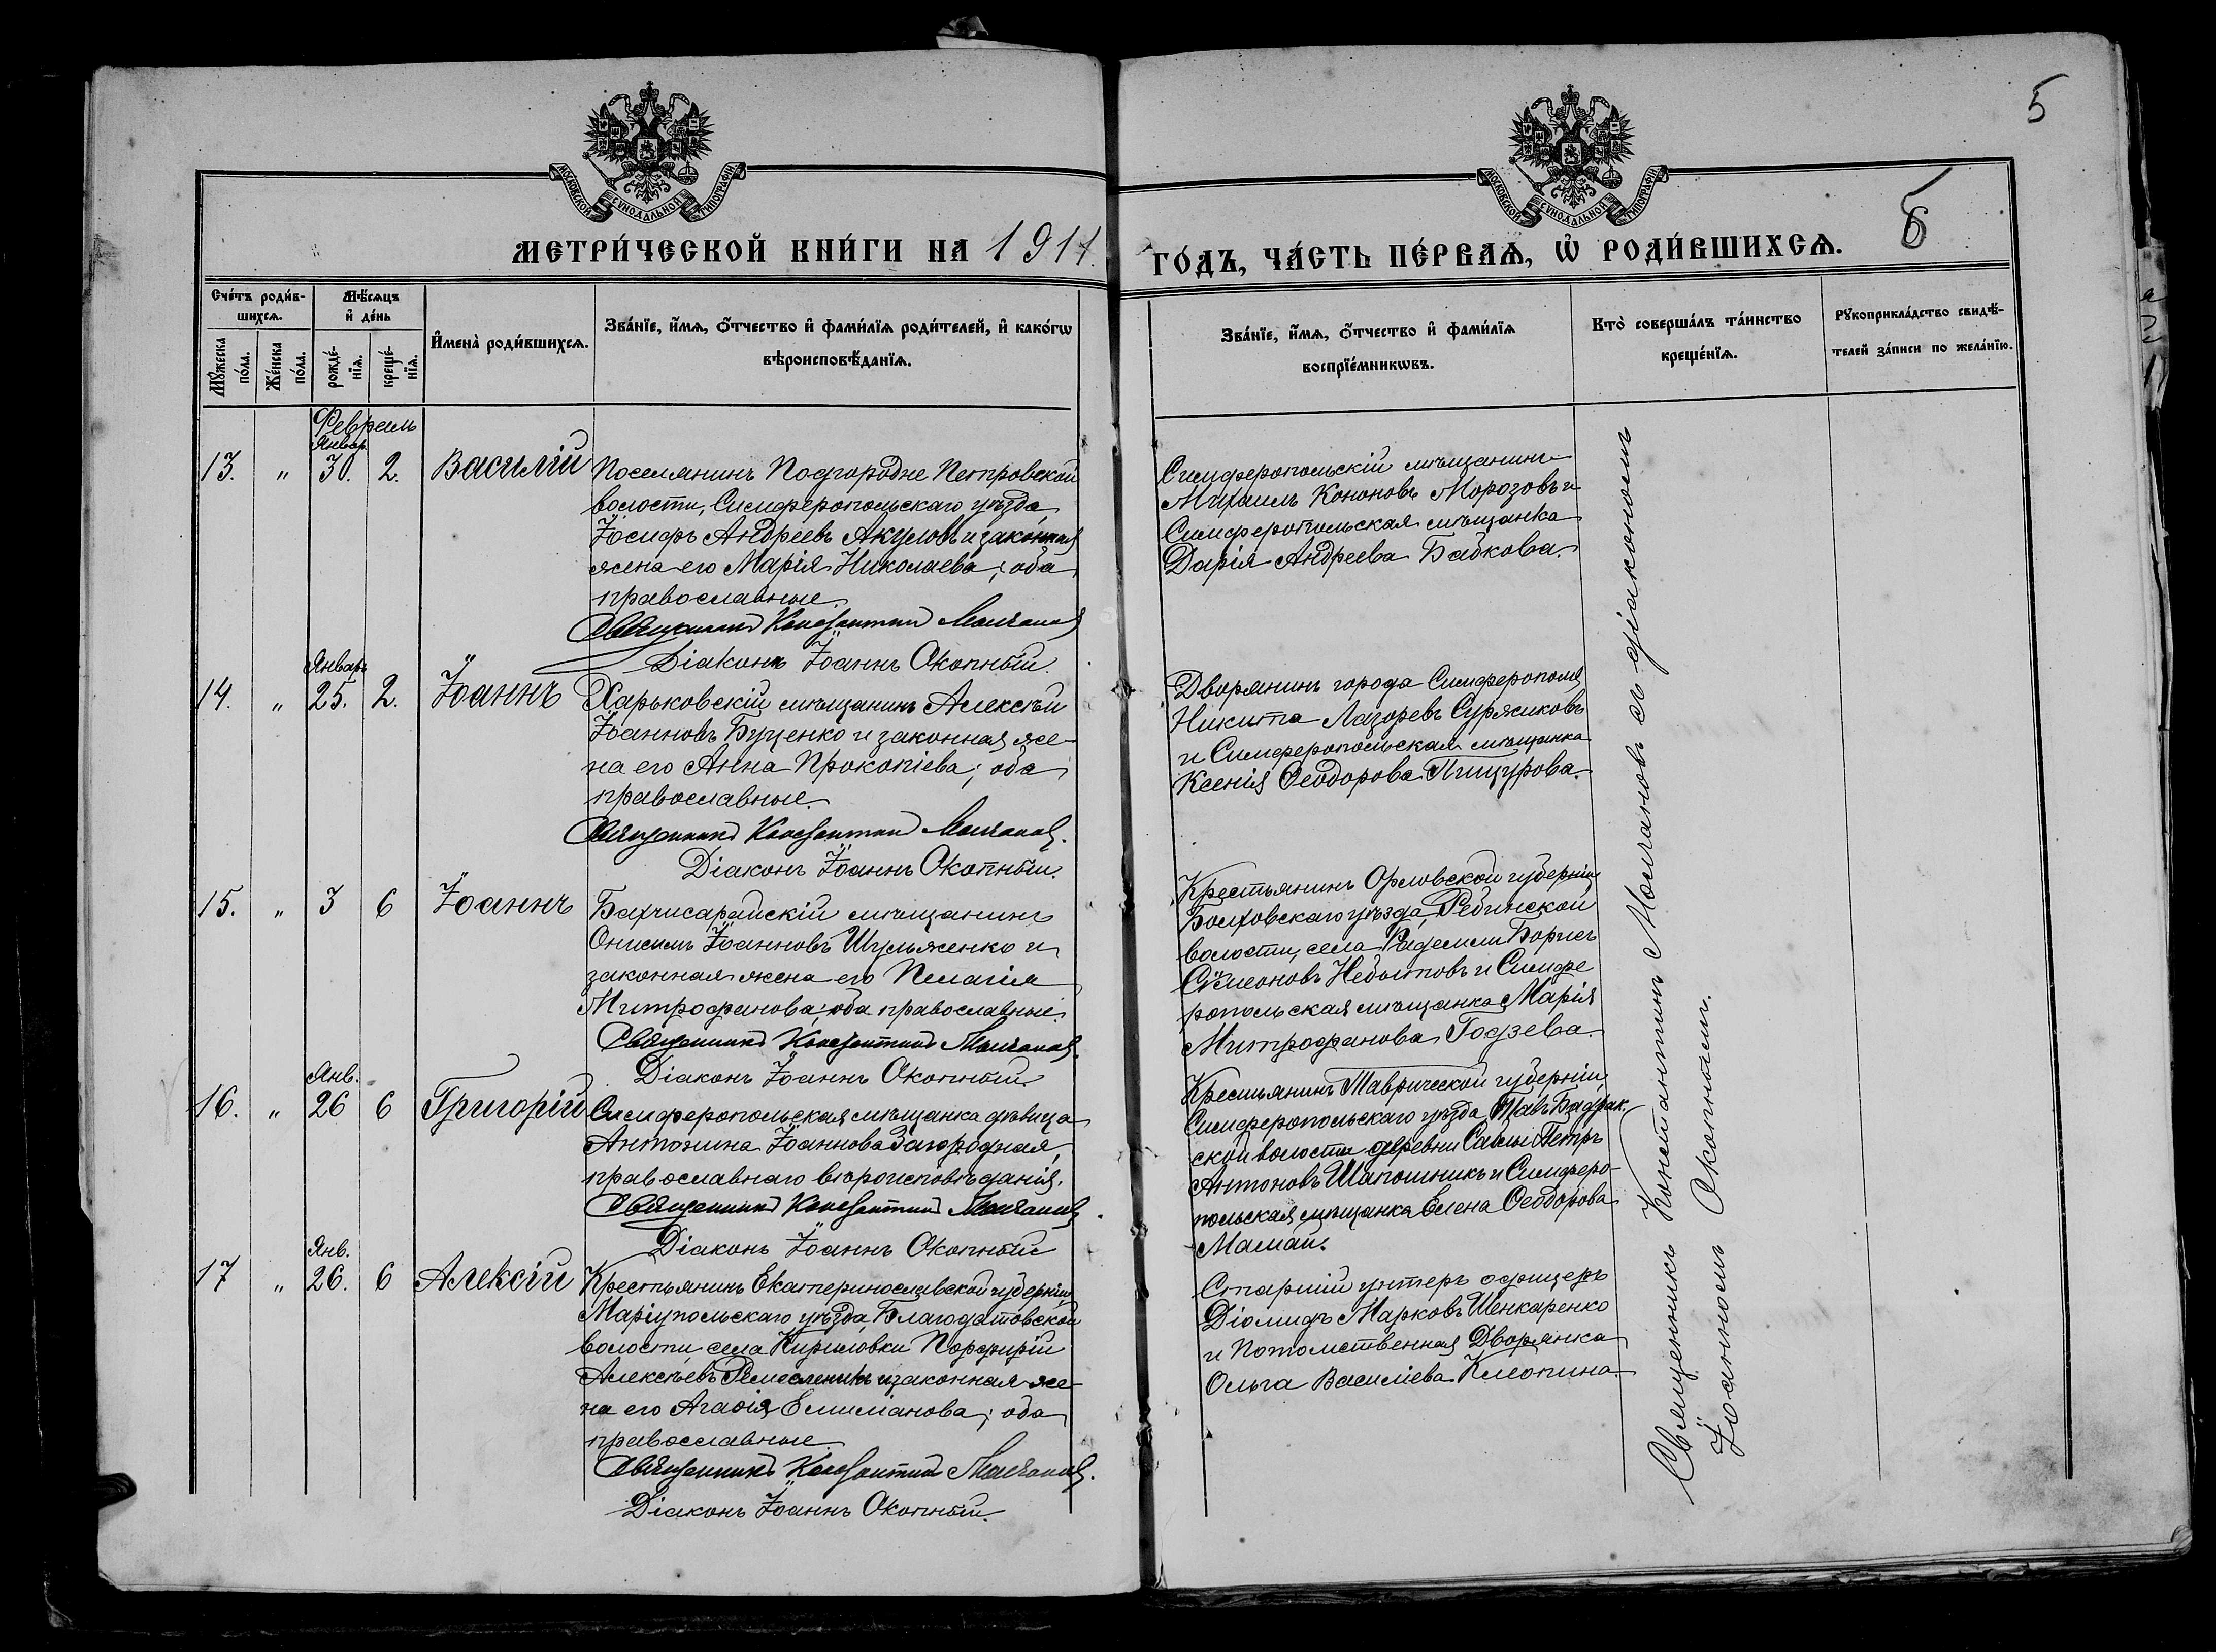 5
МОСКОВСКОЙ СѴНОДАЛЬНОЙ ТИПОГРАФІИ
МОСКОВСКОЙ СѴНОДАЛЬНОЙ ТИПОГРАФІИ
МЕТРИ́ЧЕСКОЙ КНИ́ГИ НА 1911 ГО́ДЪ, ЧА́СТЬ ПЕ́РВАѦ, Ѡ҆ РОДИ́ВШИХСѦ. 6
Сче́тъ роди́в-
шихсѧ.
Мꙋ́жеска
по́ла.
Же́нска
по́ла.
Мѣ́сѧцъ
и҆ де́нь
рожде́-
нїѧ.
креще́-
нїѧ.
И҆мена̀ роди́вшихсѧ.
Зва́нїе, и҆́мѧ, ѻ҆́тчество и҆ фами́лїѧ роди́телей, и҆ како́гѡ
вѣроисповѣ́данїѧ.
Зва́нїе, и҆́мѧ, ѻ҆́тчество и҆ фами́лїѧ
воспрїе́мникѡвъ.
Кто̀ соверша́лъ та́инство
креще́нїѧ.
Рꙋкоприкла́дство свидѣ́-
телей за́писи по жела́нїю.
Февраль
Январ.
13. " 30. 2. Василій
Поселянинъ Подгородне Петровской
волости, Симферопольскаго уѣзда
Іосифъ Андреевъ Акуловъ и законная
жена его Марія Николаева; оба
православные.
Священникъ Константинъ Молчановъ
Діаконъ Іоаннъ Окопный.
Симферопольскій мѣщанинъ
Михаилъ Кононовъ Морозовъ и
Симферопольская мѣщанка
Дарія Андреева Бабкова.
Январь
14. " 25. 2. Іоаннъ
Харьковскій мѣщанинъ Алексѣй
Іоанновъ Буценко и законная же-
на его Анна Прокопіева; оба
православные.
Священникъ Константинъ Молчановъ.
Діаконъ Іоаннъ Окопный.
Дворянинъ города Симферополя
Никита Лазоревъ Суряжиковъ
и Симферопольская мѣщанка
Ксенія Ѳеодорова Пищурова.
15. " 3 6 Іоаннъ
Бахчисарайскій мѣщанинъ
Онисимъ Іоанновъ Шульженко и
законная жена его Пелагія
Митрофанова; оба православные.
Священникъ Константинъ Молчановъ.
Діаконъ Іоаннъ Окопный.
Крестьянинъ Орловской губерніи
Болховскаго уѣзда, Ребинской
волости, села Борисъ
Сѵмеоновъ Небытовъ и Симфе
ропольская мѣщанка Марія
Митрофанова Годзева.
Янв.
16. " 26 6 Григорій
Симферопольская мѣщанка дѣвица
Антонина Іоаннова Загородная,
православнаго вѣроисповѣданія.
Священникъ Константинъ Молчановъ.
Діаконъ Іоаннъ Окопный
Крестьянинъ Таврической губерніи
Симферопольскаго уѣзда, Тавъ-Бадрак-
ской волости деревни Саблы Петръ
Антоновъ Шапошникъ и Симферо-
польская мѣщанка Елена Ѳеодорова
Мамай.
Янв.
17 " 26. 6 Алексій
Крестьянинъ Екатеринославской губерніи
Маріупольскаго уѣзда, Благодатовской
волости села Кириловки Порфирій
Алексѣевъ Ремесленикъ и законная же-
на его Агаѳія Емиліанова; оба
православные.
Священникъ Константинъ Молчановъ.
Діаконъ Іоаннъ Окопный.
Старшій унтеръ офицеръ
Діомидъ Марковъ Шенкаренко
и Потомственная Дворянка
Ольга Василіева Клеопина.
Священникъ Константинъ Молчановъ съ діакономъ
Іоанномъ Окопнымъ.